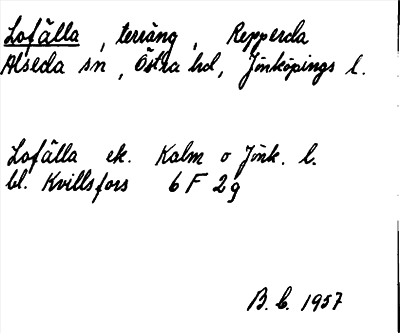 Lofälla, terräng, Repperda
Alseda sn, Östra hd, Jönköpings l.
Lofälla ek. Kalm o Jönk. l.
bl. Kvillsfors 6 F 2g
B. L. 1957